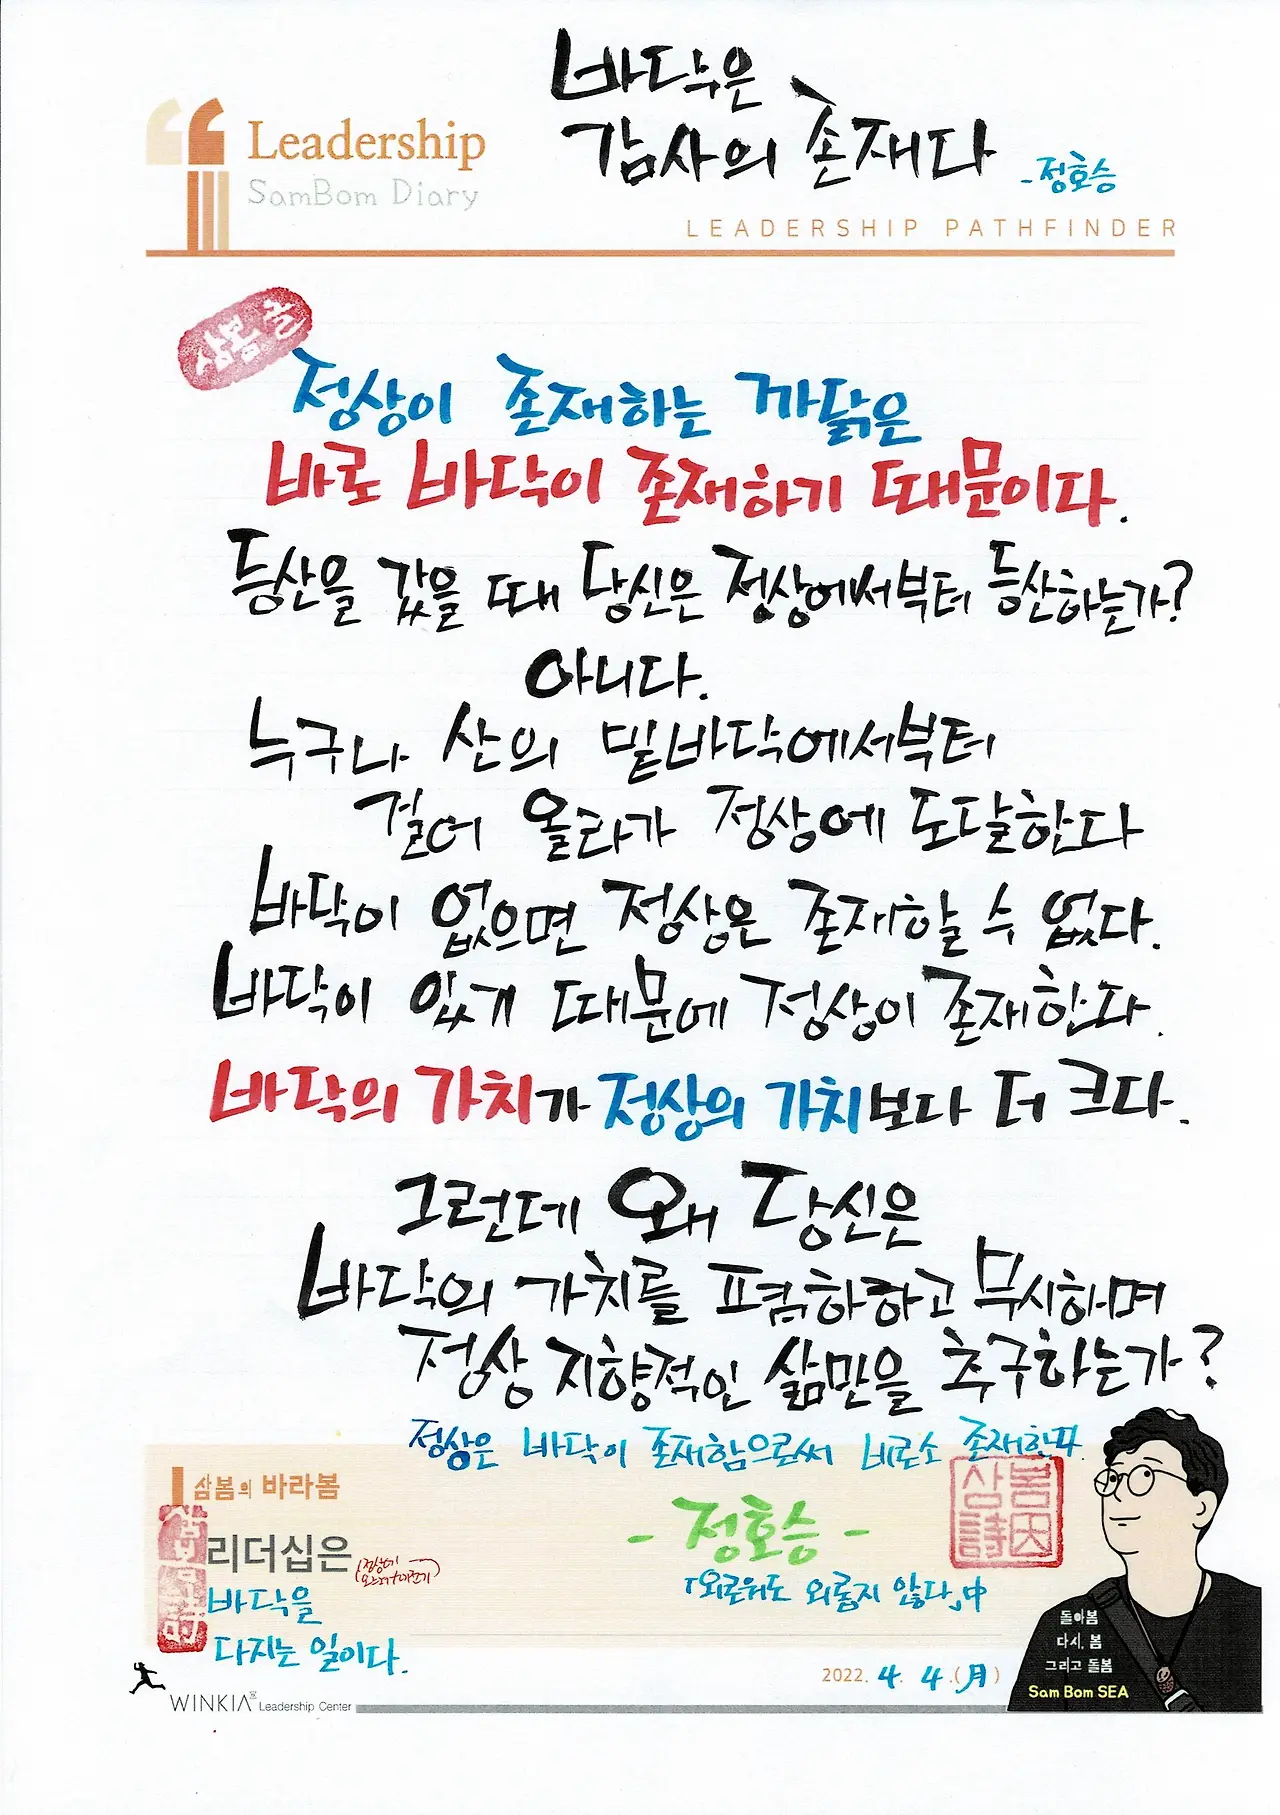 바닥은
감사의 존재다
-정호승
Leadership
SamBom Diary
LEADERSHIP PATHFINDER
정상이 존재하는 까닭은
바로 바닥이 존재하기 때문이다.
등산을 갔을 때 당신은 정상에서부터 등산하는가?
아니다.
누구나 산의 밑바닥에서부터
걸어 올라가 정상에 도달한다
바닥이 없으면 정상은 존재할 수 없다.
바닥이 있기 때문에 정상이 존재한다.
바닥의 가치가 정상의 가치보다 더 크다.
그런데 왜 당신은
바닥의 가치를 폄하하고 무시하며
정상 지향적인 삶만을 추구하는가?
정상은 바닥이 존재함으로써 비로소 존재한다.
삼봄의 바라봄
리더십은
(정상에 오르기 이전에)
바닥을
다지는 일이다.
- 정호승 -
「외로워도 외롭지 않다」中
삼봄詩因
돌아봄
다시, 봄
그리고 돌봄
Sam Bom SEA
2022. 4. 4.(月)
WINKIA Leadership Center